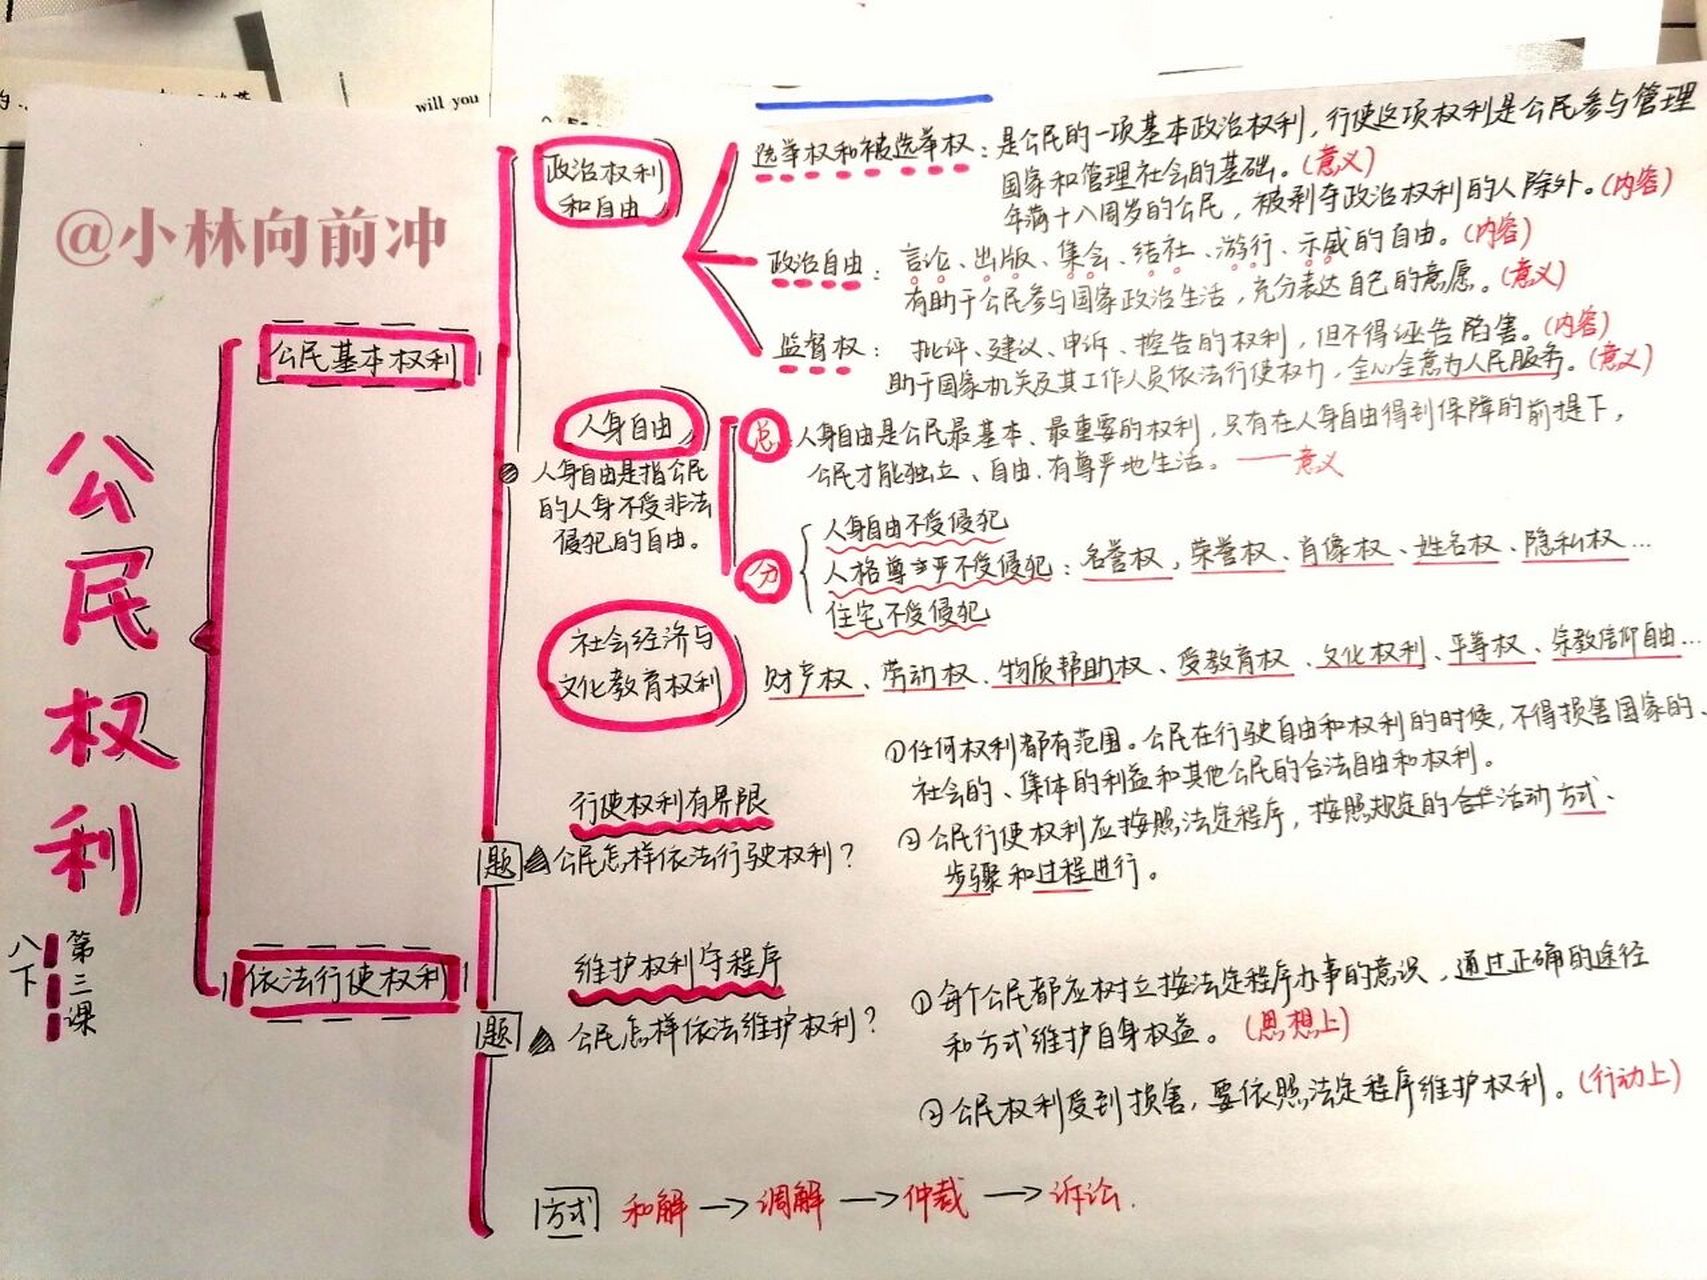 will you
@小林向前冲
公民权利
八下
第三课
公民基本权利
政治权利
和自由
选举权和被选举权：是公民的一项基本政治权利，行使这项权利是公民参与管理
国家和管理社会的基础。(意义)
年满十八周岁的公民，被剥夺政治权利的人除外。(内容)
政治自由：言论、出版、集会、结社、游行、示威的自由。(内容)
有助于公民参与国家政治生活，充分表达自己的意愿。(意义)
监督权：批评、建议、申诉、控告的权利，但不得诬告陷害。(内容)
助于国家机关及其工作人员依法行使权力，全心全意为人民服务。(意义)
人身自由
人身自由是指公民
的人身不受非法
侵犯的自由。
总 人身自由是公民最基本、最重要的权利，只有在人身自由得到保障的前提下，
公民才能独立、自由、有尊严地生活。——意义
分
人身自由不受侵犯
人格尊严不受侵犯：名誉权，荣誉权、肖像权、姓名权、隐私权…
住宅不受侵犯
社会经济与
文化教育权利
财产权、劳动权、物质帮助权、受教育权、文化权利、平等权、宗教信仰自由…
依法行使权利
行使权利有界限
题 公民怎样依法行驶权利？
①任何权利都有范围。公民在行驶自由和权利的时候，不得损害国家的、
社会的、集体的利益和其他公民的合法自由和权利。
②公民行使权利应按照法定程序，按照规定的活动方式、
步骤和过程进行。
维护权利守程序
题 公民怎样依法维护权利？
①每个公民都应树立按法定程序办事的意识，通过正确的途径
和方式维护自身权益。(思想上)
②公民权利受到损害，要依照法定程序维护权利。(行动上)
方式 和解→调解→仲裁→诉讼.